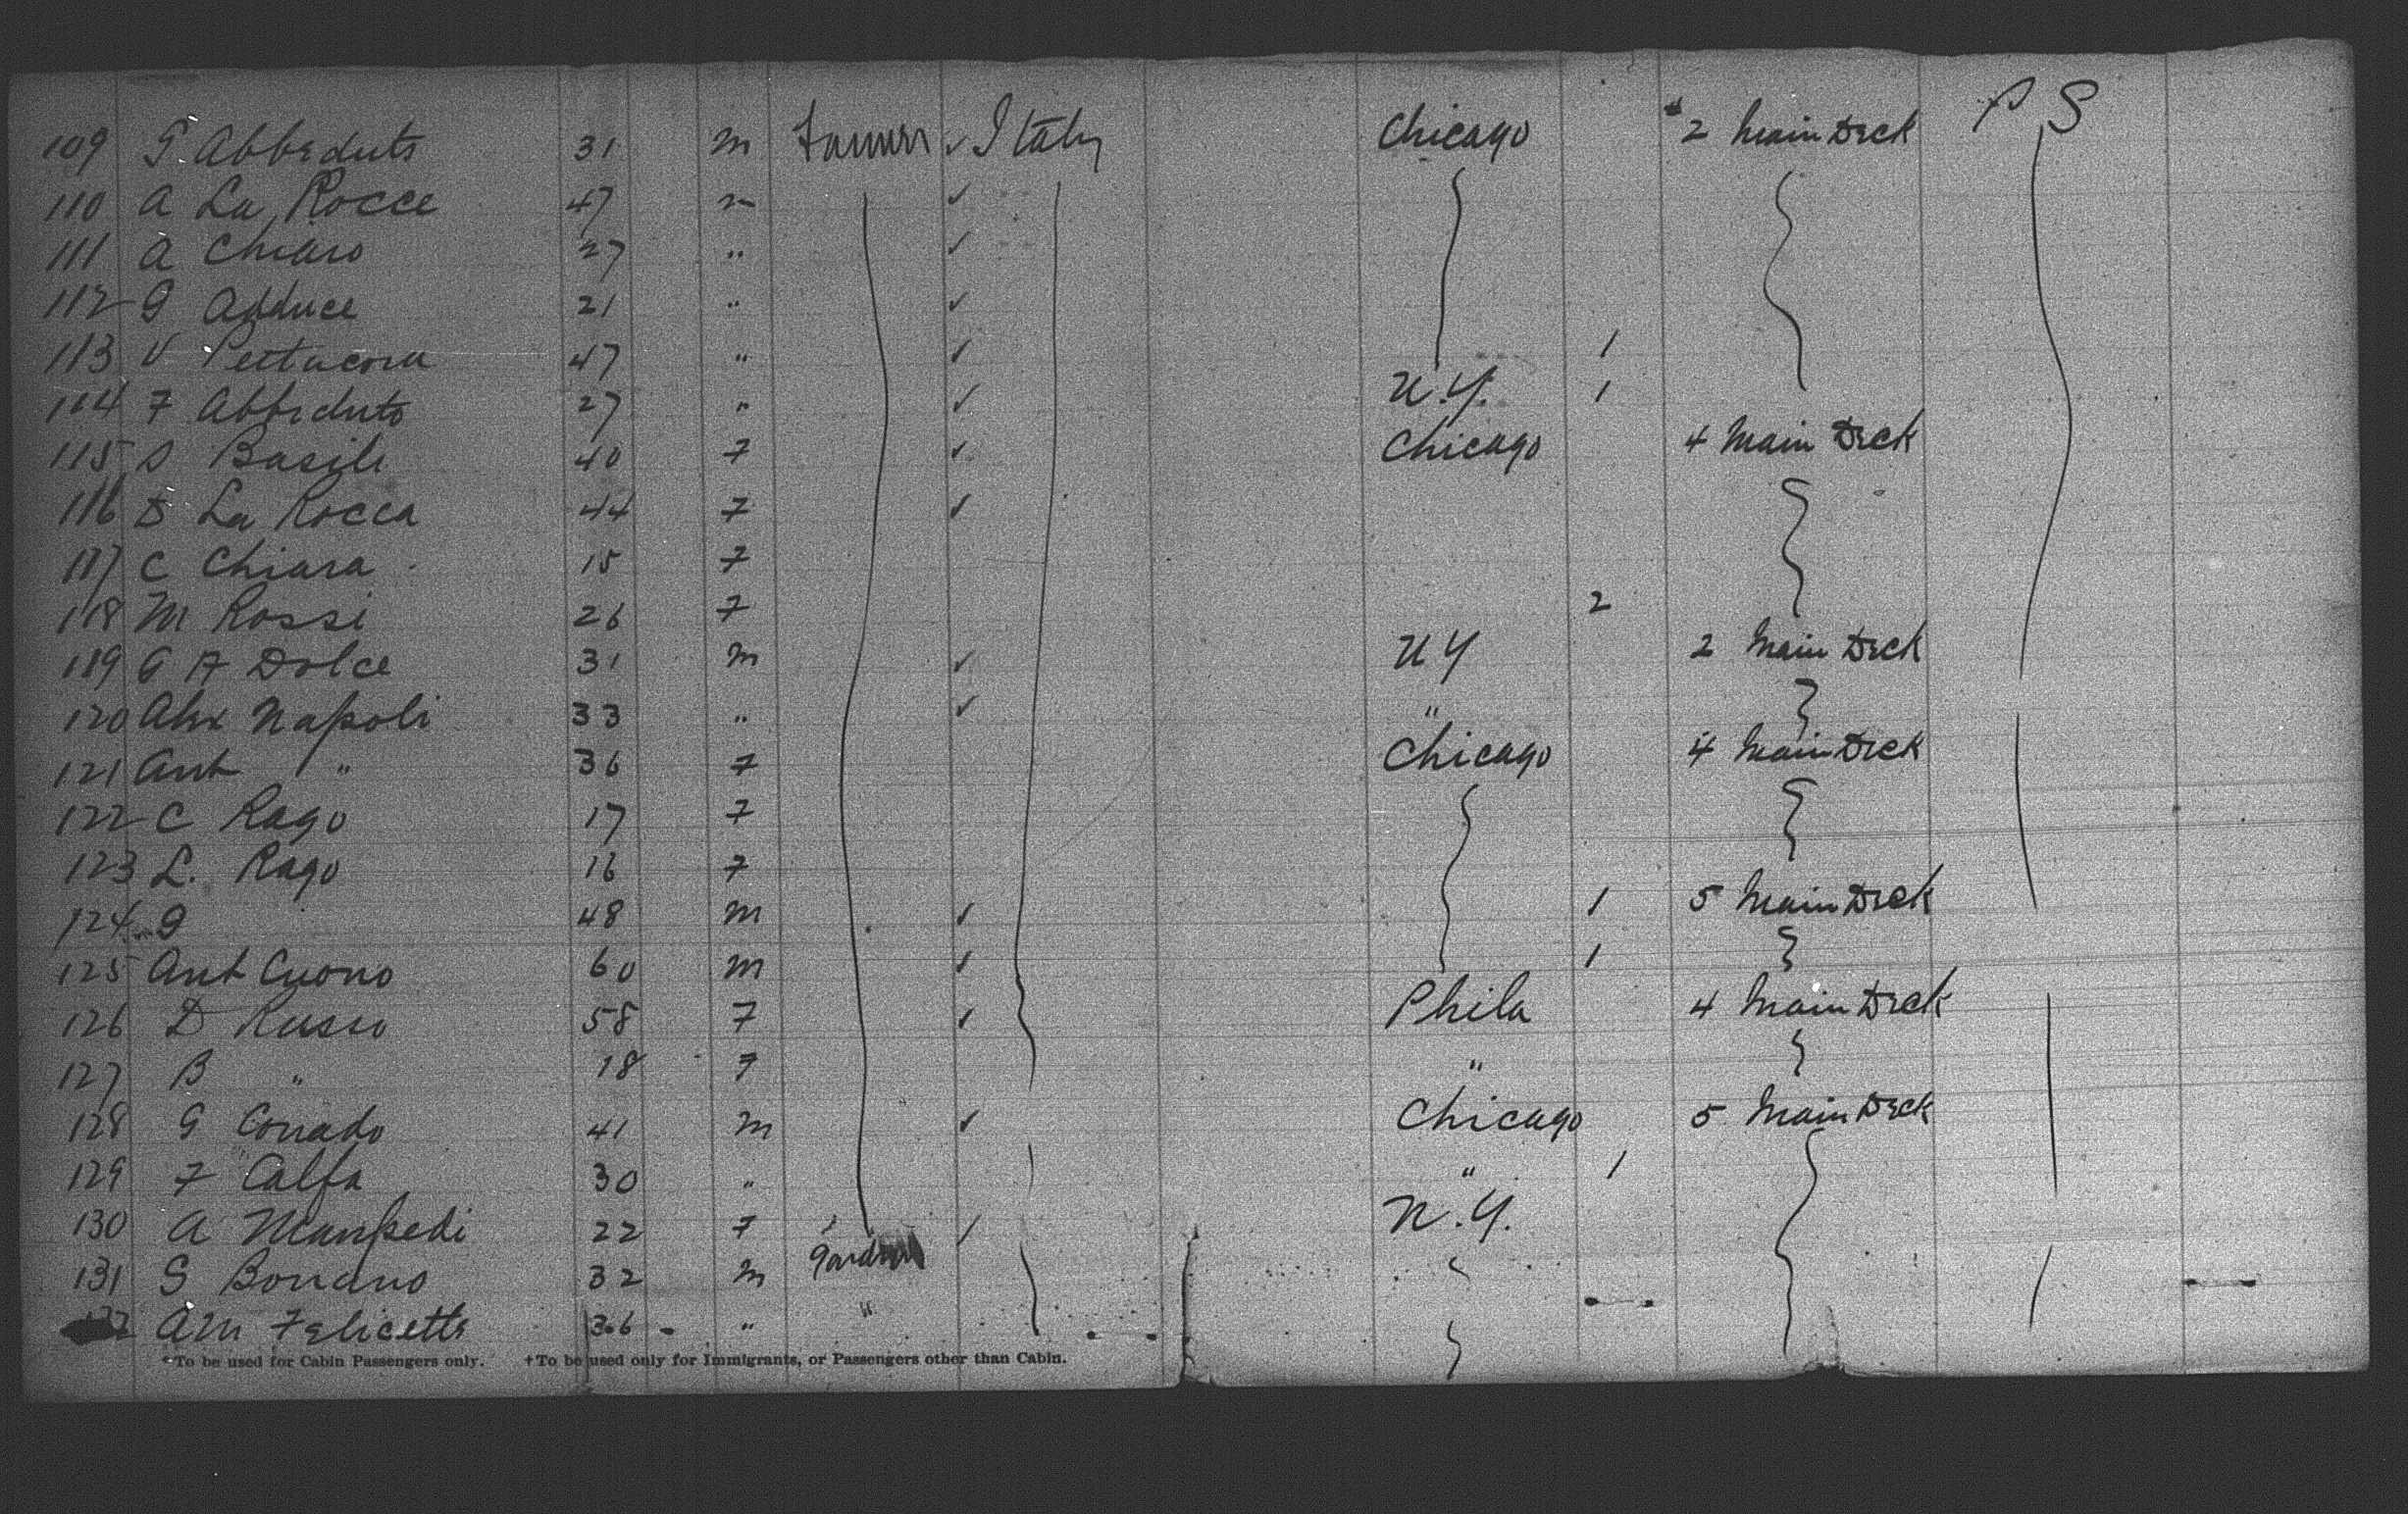 109 G Abbeduts 31 m farmer ✓ Italy Chicago 2 Main Deck P S
110 A La Rocce 47 m ✓
111 A Chiaro 27 " ✓
112 G Adduce 21 " ✓
113 V 47 " ✓ 1
114 F Abbeduto 27 " ✓ N.Y. 1
115 S Basile 40 F ✓ Chicago 4 Main Deck
116 D La Rocca 44 F ✓
117 C Chiara 15 F
118 M Rossi 26 F 2
119 G A Dolce 31 m ✓ N Y 2 Main Deck
120 Alex Napoli 33 " ✓ "
121 Ant " 36 F Chicago 4 Main Deck
122 C Rago 17 F
123 L. Rago 16 F
124 G 48 m ✓ 1 5 Main Deck
125 Ant Cuono 60 m ✓ 1
126 D Russo 58 F ✓ Phila 4 Main Deck
127 B " 18 F "
128 G Corrado 41 m ✓ Chicago 5 Main Deck
129 F Calfa 30 " " 1
130 A 22 F N.Y.
131 G Bonano 32 m
132 AM Felicetti 36 " "
*To be used for Cabin Passengers only. †To be used only for Immigrants, or Passengers other than Cabin.